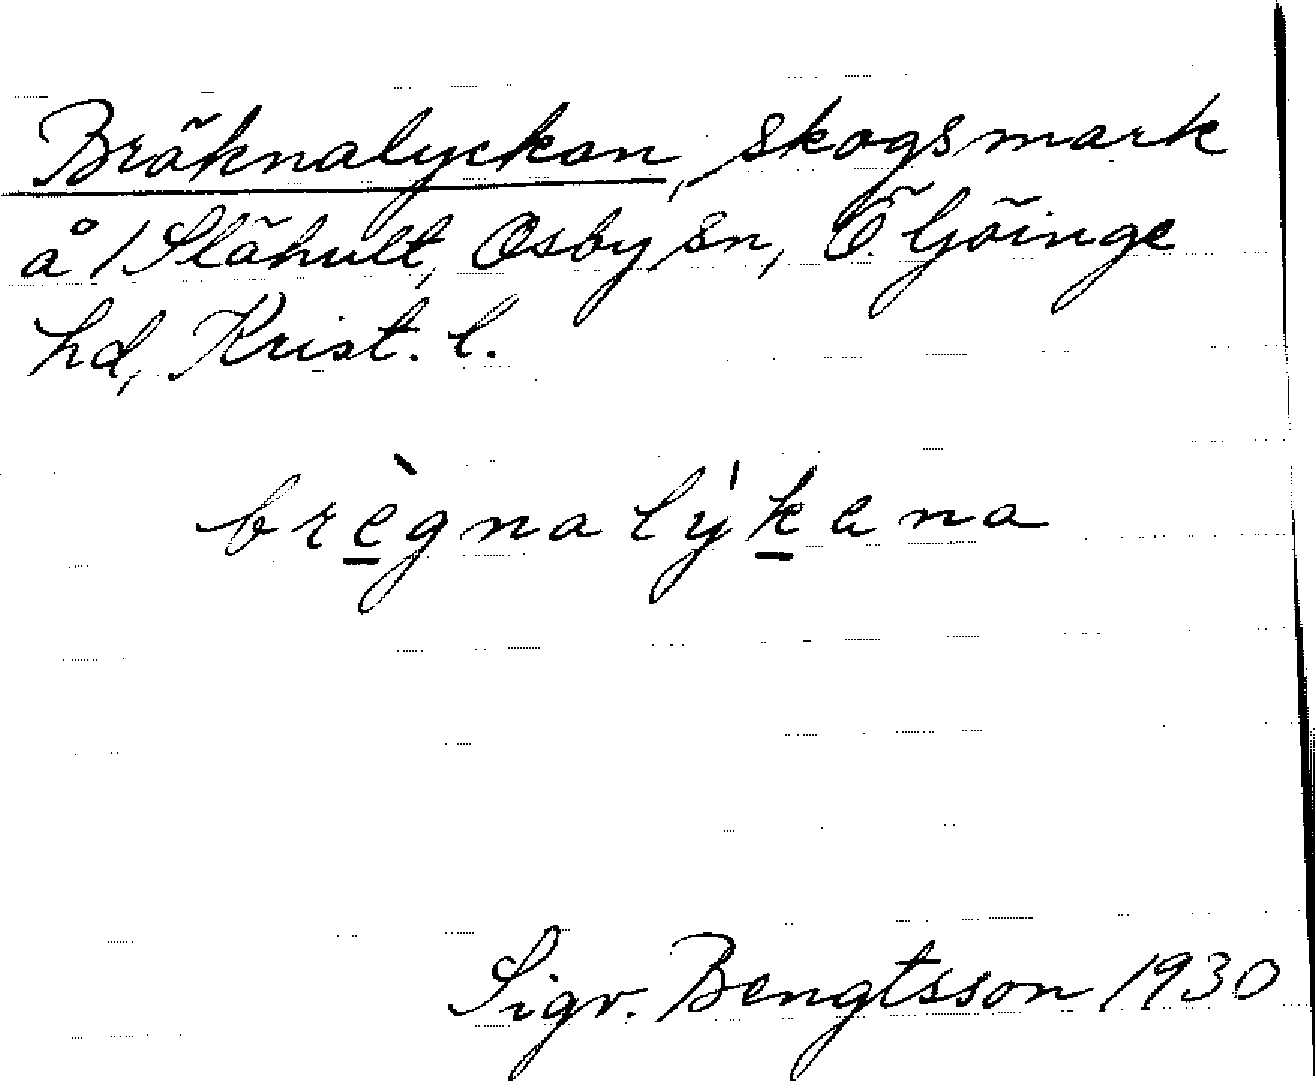 Bräknalyckan, skogsmark
å 1 Slähult, Osby sn, Ö. Göinge
hd, Krist. l.
brègnalýkana
Sigv. Bengtsson 1930